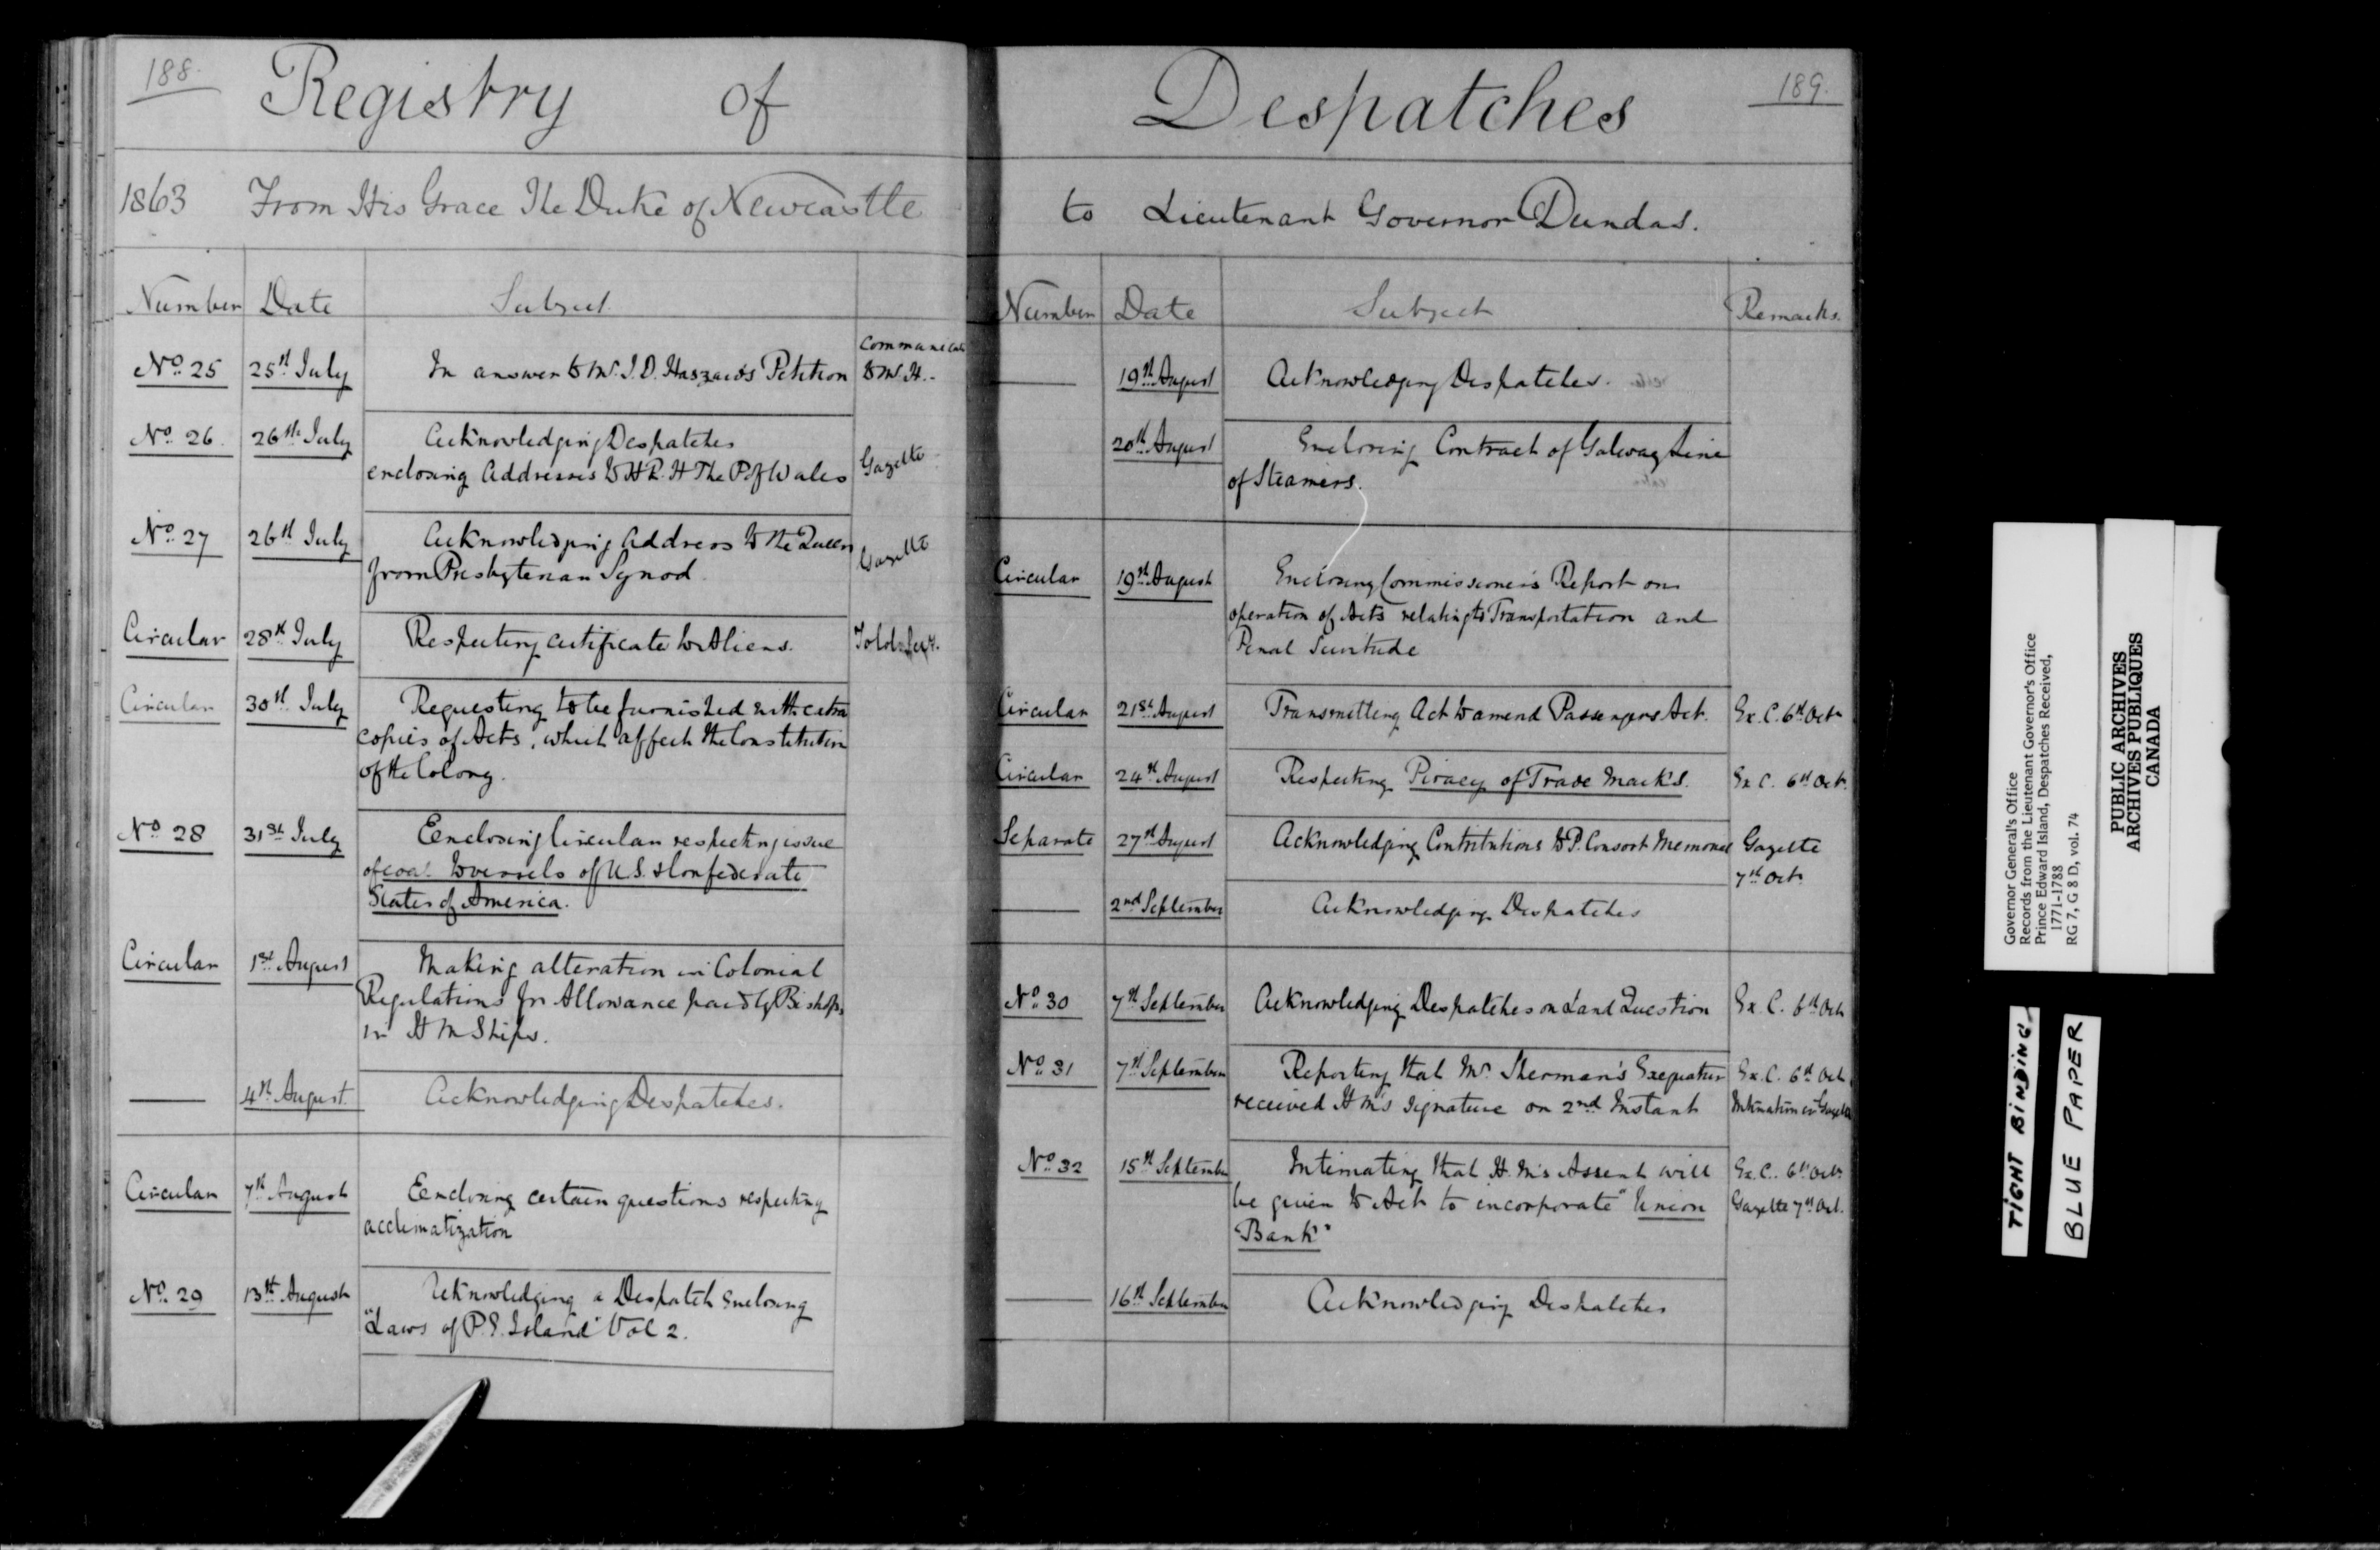 188.
Registry of
1863 From His Grace The Duke of Newcastle
Number Date Subject
No. 25 25th July In answer to Mr. J. D. Haszard's Petition
to Mr. H.-
No. 26. 26th July Acknowledging Despatches
enclosing Addresses to H R. H The P. of Wales Gazette
No. 27 26th July Acknowledging Address to the Queen Gazette
from Presbyterian Synod.
Circular 28th July Respecting certificates to Aliens.
Circular 30th July Requesting to be furnished with extra
copies of Acts, which affect the Constitution
of the Colony.
No. 28 31st July Eenclosing Circular respecting issue
of coal to vessels of U.S. & Confederate
States of America.
Circular 1st August Making alteration in Colonial
Regulations for Allowance paid by Bishops
in H M Ships.
4th August. Acknowledging Despatches.
Circular 7th August Eenclosing certain questions respecting
acclimatization
No. 29 13th August Acknowledging a Despatch Enclosing
"Laws of P. E. Island" Vol 2.
189.
Despatches
to Lieutenant Governor Dundas.
Number Date Subject Remarks.
19th August Acknowledging Despatches.
20th August Enclosing Contract of Galway Line
of Steamers.
Circular 19th August Enclosing Commissioners Report on
operation of Acts relating to Transportation and
Penal Servitude
Circular 21st August Transmitting Act to amend Passengers Act. Ex. C. 6th Octr
Circular 24th August Respecting Piracy of Trade Marks. Ex C. 6th Octr.
Separate 27th August Acknowledging Contributions to P. Consort Memorial Gazette
7th Octr.
2nd September Acknowledging Despatches
No. 30 7th September Acknowledging Despatches on Land Question Ex. C. 6th Octr
No. 31 7th September Reporting that Mr. Sherman's Exequatur Ex. C. 6th Oct.
received H M's signature on 2nd Instant Intimation in Gazette
No. 32 15th September Intimating that H. M's Assent will Ex. C. 6th Octr.
be given to Act to incorporate "Union Gazette 7th Oct.
Bank"
16th September Acknowledging Despatches
Governor General's Office
Records from the Lieutenant Governor's Office
Prince Edward Island, Despatches Received,
1771-1788
RG 7, G 8 D, vol. 74
PUBLIC ARCHIVES
ARCHIVES PUBLIQUES
CANADA
TIGHT BINDING
BLUE PAPER